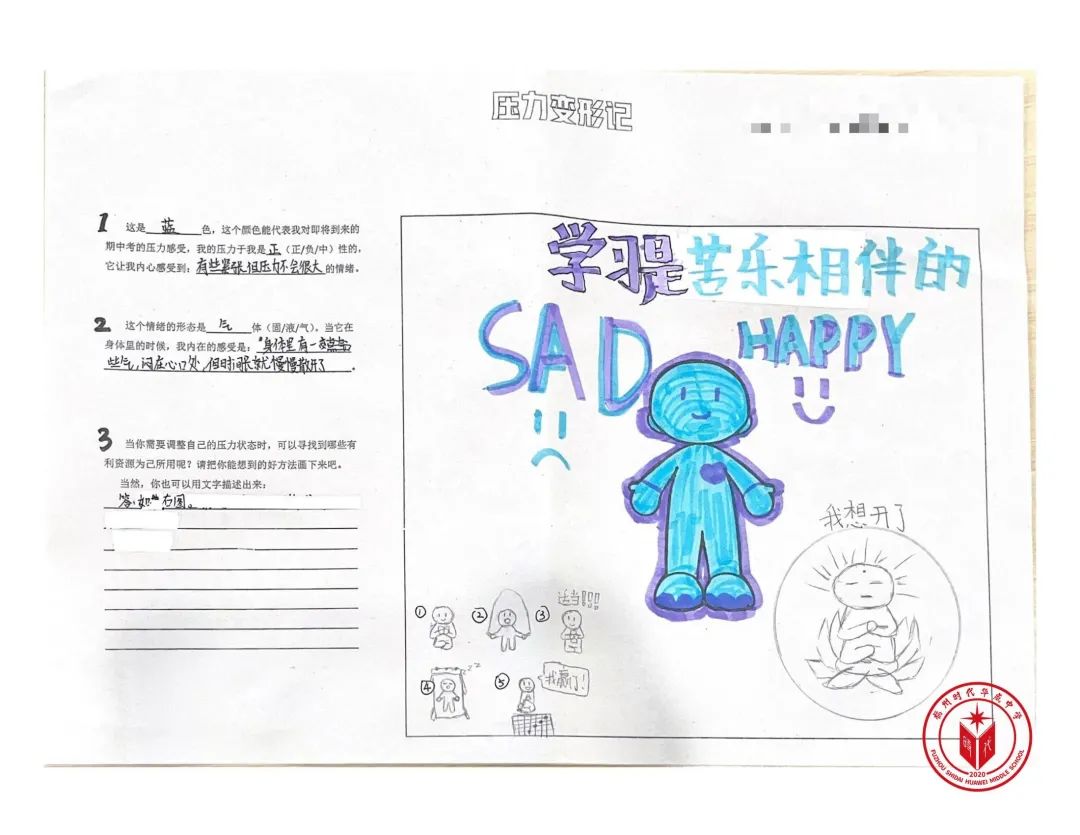 压力变形记
1 这是 蓝 色，这个颜色能代表我对即将到来的
期中考的压力感受，我的压力于我是 正（正/负/中）性的，
它让我内心感受到：有些紧张，但压力不会很大 的情绪。
2 这个情绪的形态是 气 体（固/液/气）。当它在
身体里的时候，我内在的感受是：身体里有一
些气，闷在心口处，但时间长就慢慢散开了.
3 当你需要调整自己的压力状态时，可以寻找到哪些有
利资源为己所用呢？请把你能想到的好方法画下来吧。
当然，你也可以用文字描述出来：
答：如右图。
学习是苦乐相伴的
SAD
HAPPY
我想开了
① ② ③ 适当!!!
④ zz ⑤ 我赢了!
福州时代华威中学
時代
2020
FUZHOU SHIDAI HUAWEI MIDDLE SCHOOL